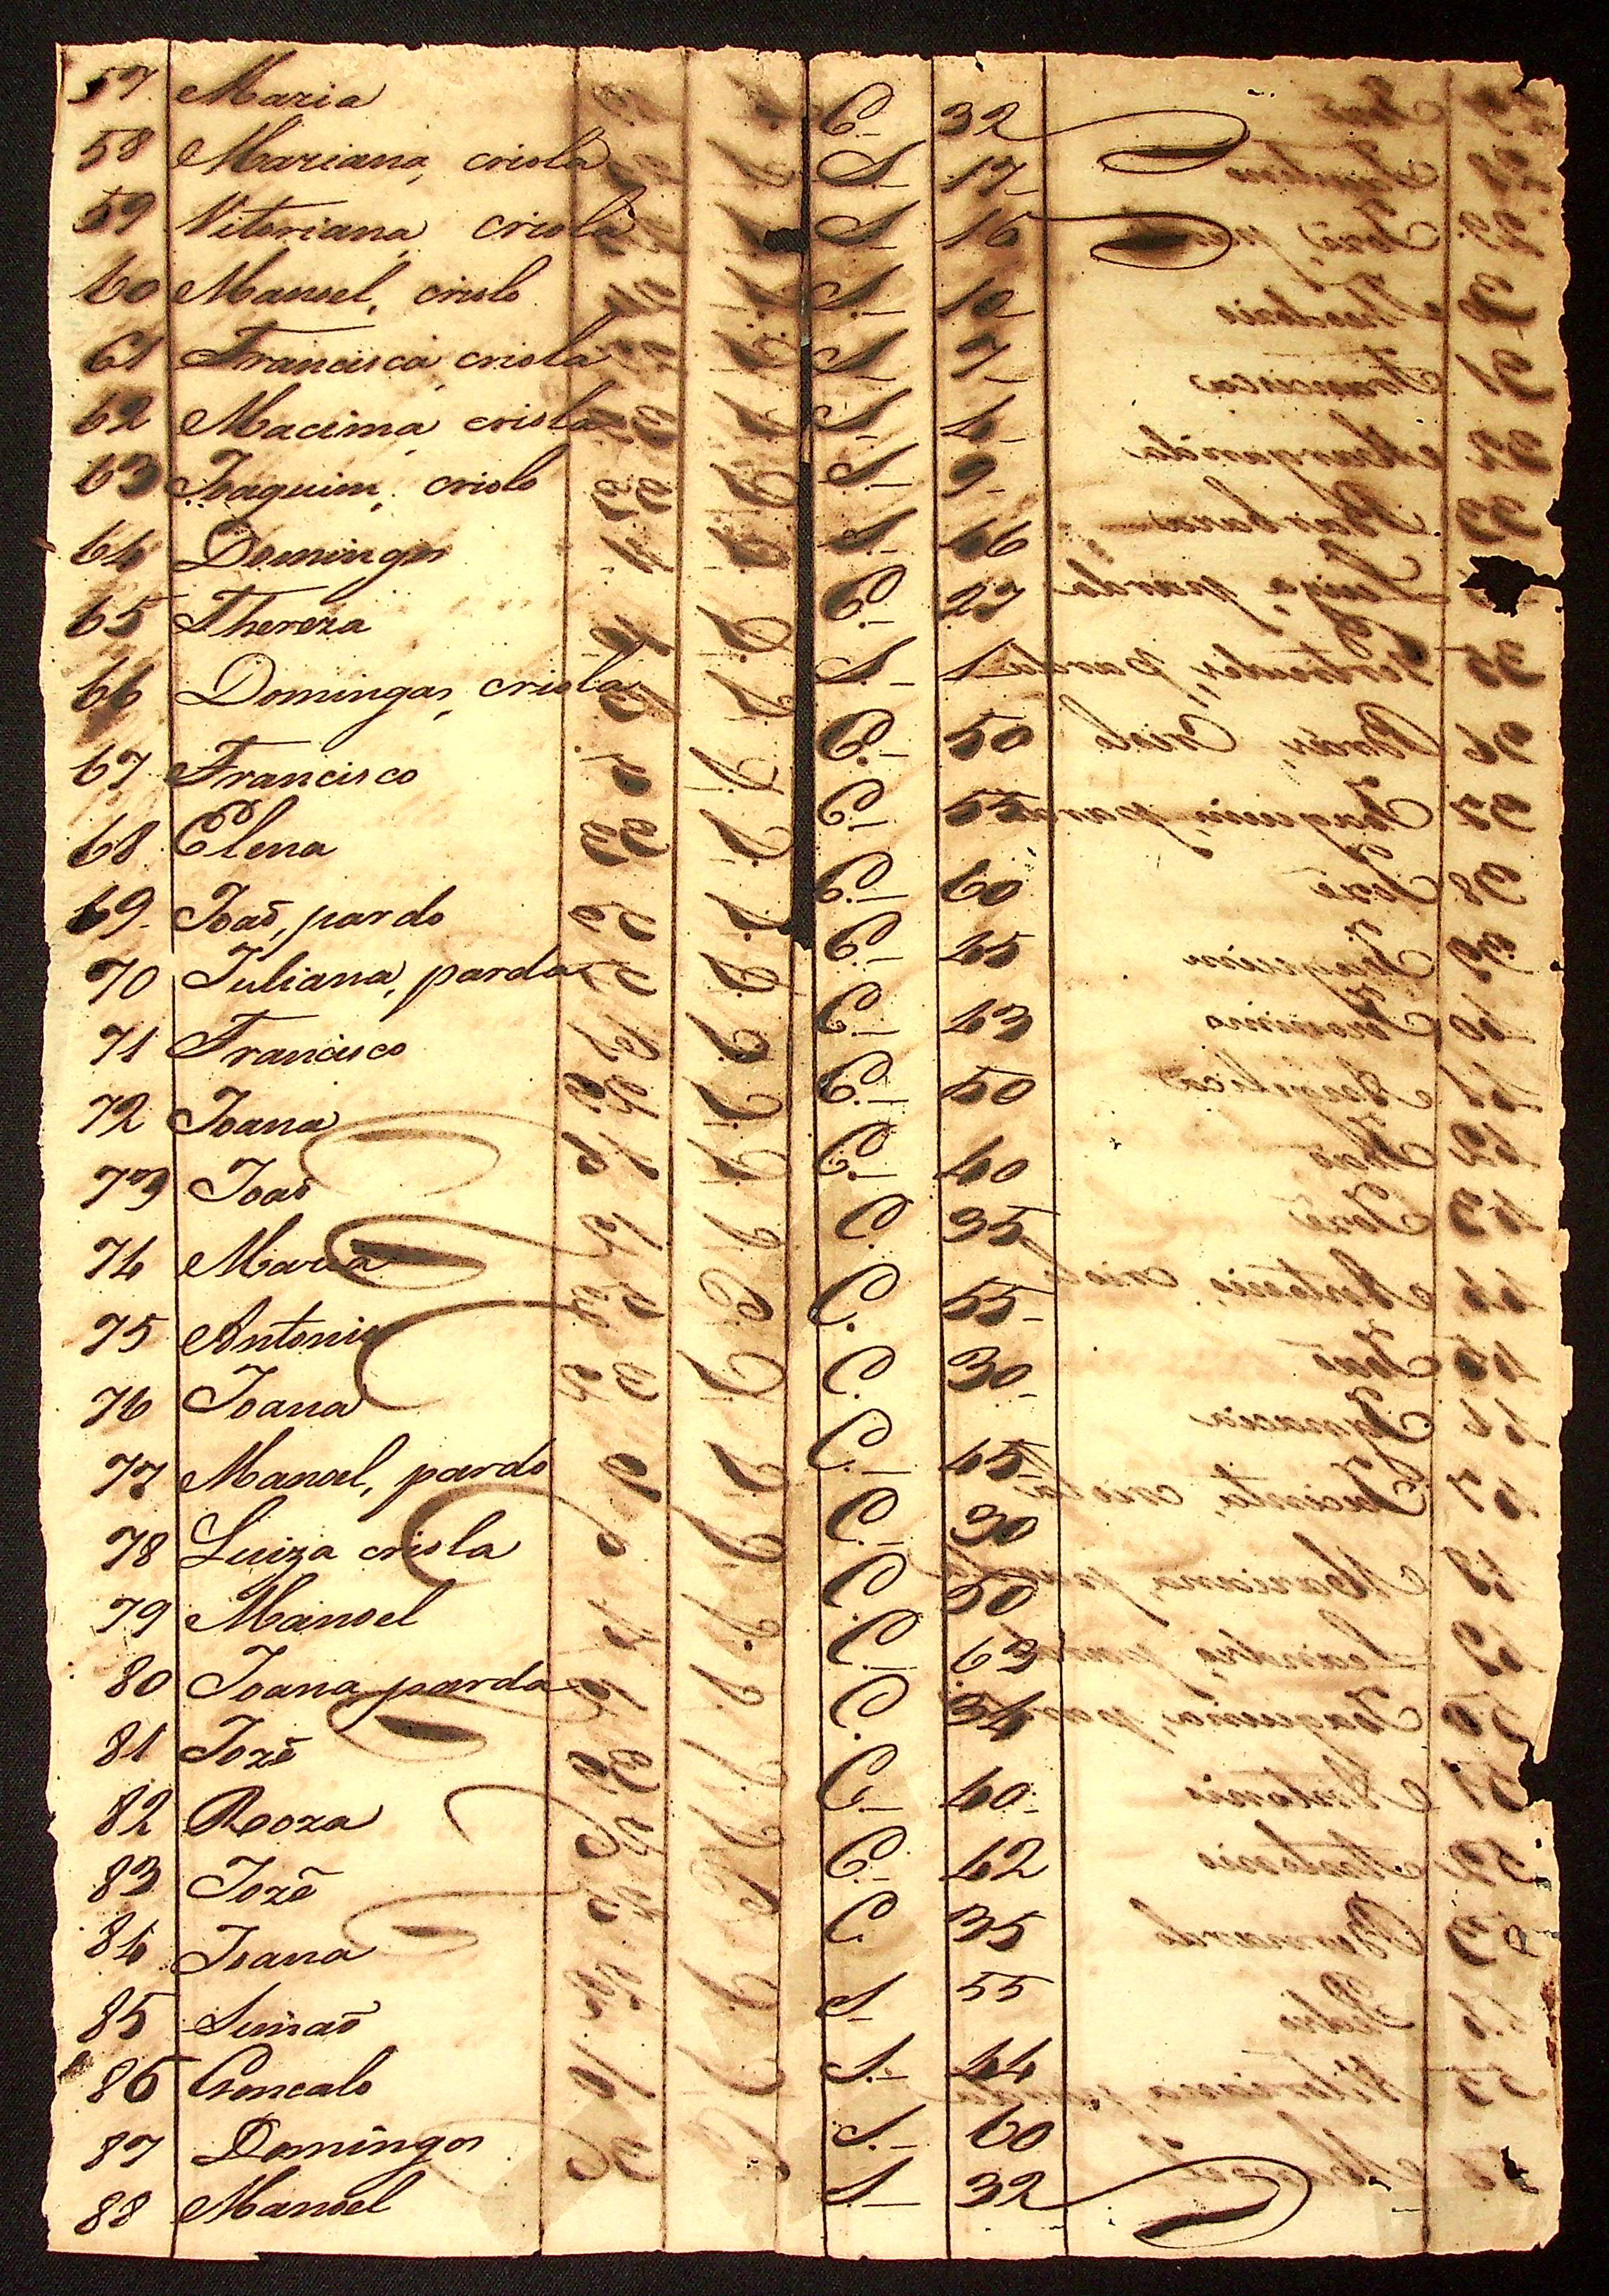 57 Maria C.- 32
58 Mariana, criola S.- 17-
59 Vitoriana criola S- 16
60 Manoel, criolo S.- 10-
61 Francisca criola S- 7-
62 Macima criola S- 4-
63 Joaquim, criolo S- 9-
64 Domingos S.- 46
65 Thereza C.- 27
66 Domingas, criola S.- 1
67 Francisco C.- 50
68 Elena C.- 55
69 Joaõ, pardo C.- 60
70 Juliana, parda C.- 45
71 Francisco C.- 43
72 Joana C.- 50
73 Joaõ C.- 40
74 Maria C. 35
75 Antonio C. 55-
76 Joana C. 30-
77 Manoel, pardo C.- 45-
78 Luiza criola C.- 30
79 Manoel C. 50
80 Joana parda C.- 63
81 Jozé C. 34
82 Roza C.- 40-
83 Jozé C.- 42
84 Joana C. 35
85 Simaõ S- 55
86 Goncalo S.- 44
87 Domingos S.- 60
88 Manoel S- 32